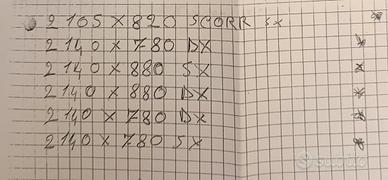 2165 X 820 SCORR SX *
2140 X 780 DX *
2140 X 880 SX *
2140 X 880 DX *
2140 X 780 DX *
2140 X 780 SX *
subito